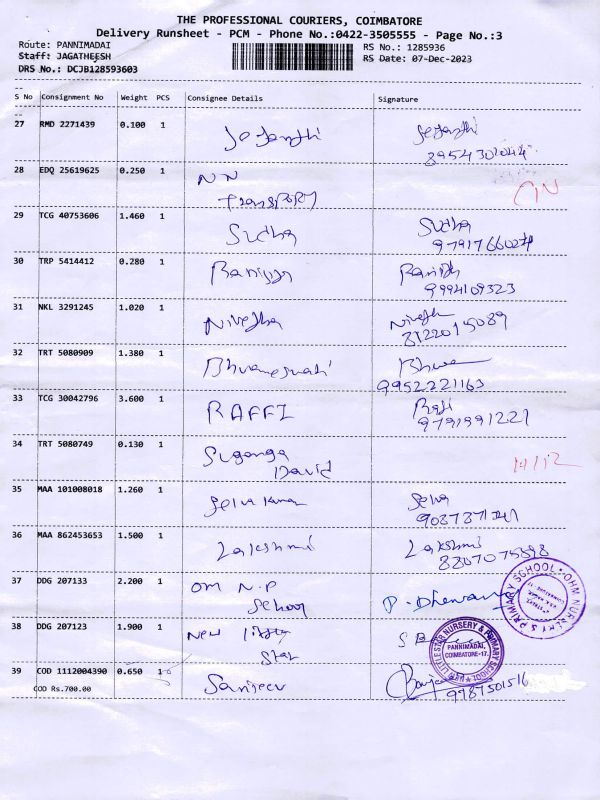 THE PROFESSIONAL COURIERS, COIMBATORE
Delivery Runsheet - PCM - Phone No.:0422-3505555 - Page No.:3
Route: PANNIMADAI
RS No.: 1285936
Staff: JAGATHEESH
RS Date: 07-Dec-2023
DRS No.: DCJB128593603
S No Consignment No Weight PCS Consignee Details Signature
27 RMD 2271439 0.100 1
28 EDQ 25619625 0.250 1 NN
Transport
29 TCG 40753606 1.460 1 Sudha Sudha
30 TRP 5414412 0.280 1
9994109323
31 NKL 3291245 1.020 1 Nivedha
8122015089
32 TRT 5080909 1.380 1 Bhuvaneswari
9952221163
33 TCG 30042796 3.600 1 RAFFI Rafi
9791991221
34 TRT 5080749 0.130 1 Suganga
David
35 MAA 101008018 1.260 1 Selva Kumar Selva
36 MAA 862453653 1.500 1 Lakshmi Lakshmi
37 DDG 207133 2.200 1 OM N.P
School
38 DDG 207123 1.900 1 New little
Star
39 COD 1112004390 0.650 1 Sanjeev
COD Rs.700.00
LITTLE STAR NURSERY & PRIMARY SCHOOL
PANNIMADAI,
COIMBATORE-17.